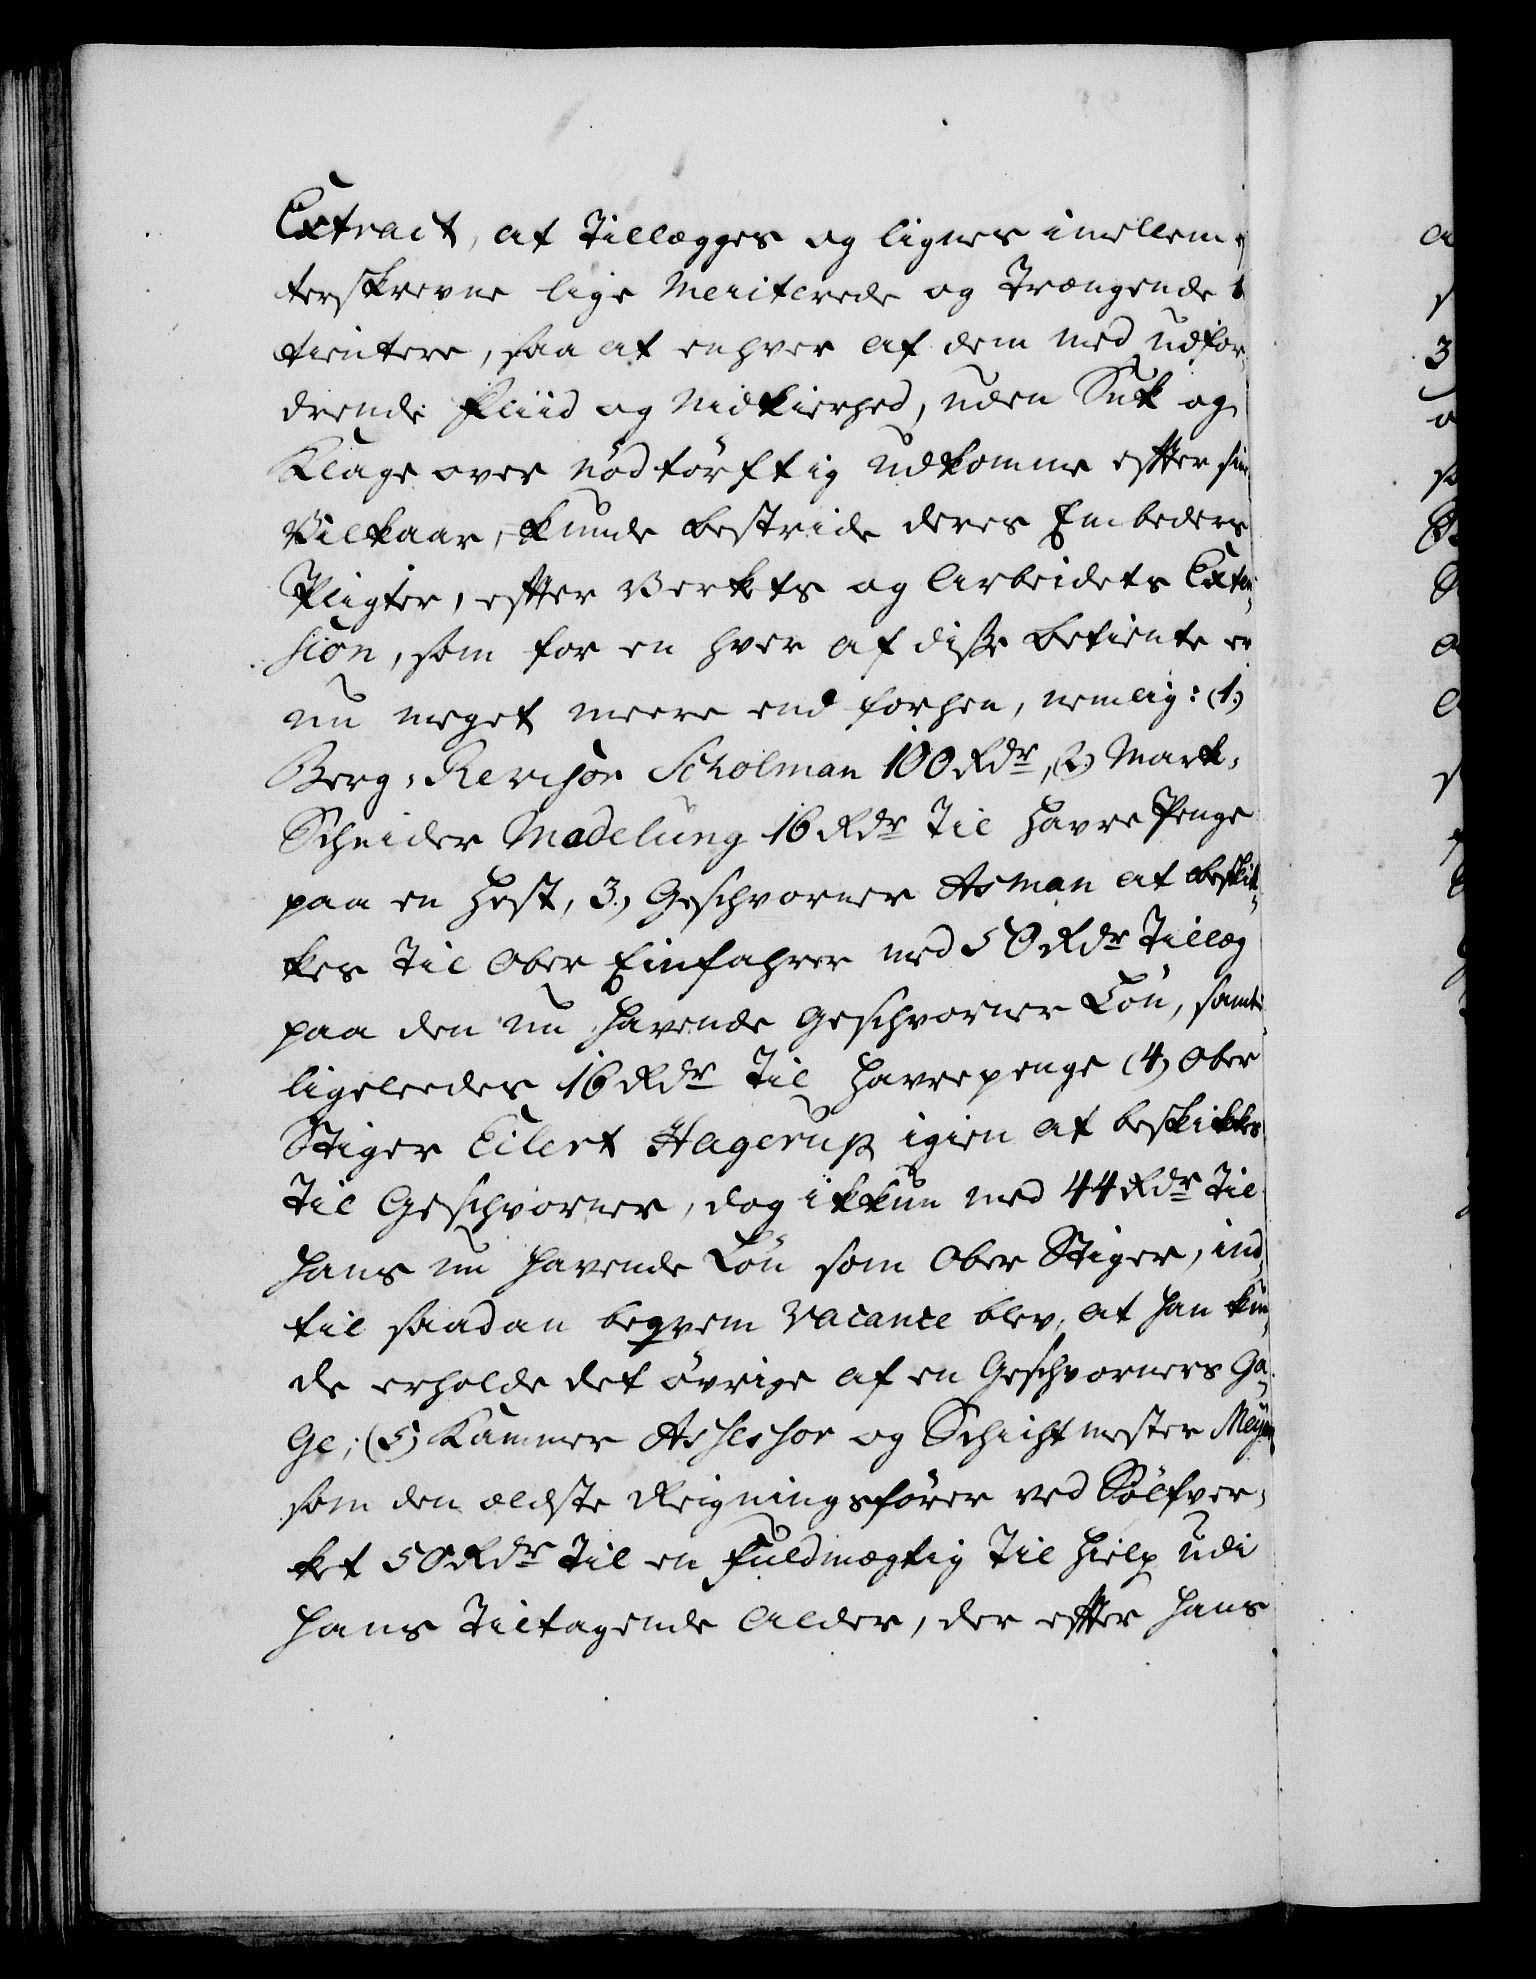 Extract, at Tillægges og lignes imellem
terskrevne lige Meriterede og Trængende
tientere, saa at enhver af dem med udfor-
drende Fliid og Nidkierhed, uden Suk og
Klage over nödtörftig udkomme effter sin
Vilkaar, kunde bestride deres Embeders
Pligter, effter Verkets og Arbeidets Exten-
sion, som for en hver af disse betiente er
nu meget meere end forhen, nemlig: (1.)
Berg-Revisor Scholman 100 Rdr, (2.) Mark-
Scheider Madelung 16 Rdr Til Havre Penge
paa en Hest, 3.) Geschvorner Asman at beskik-
kes Til Ober Einfahrer med 50 Rdr Tillæg
paa den nu havende Geschvorner Lön, samt
ligeleedes 16 Rdr Til Havrepenge (4) Ober
Stiger Eilert Hagerup igien at beskikkes
Til Geschvorner, dog ikkun med 44 Rdr Til
hans nu havende Lön som Ober Stiger, ind-
til saadan beqvem Vacance blev, at han kun-
de erholde det övrige af en Geschvorners Ga-
ge; (5) Kammer Assessor og Schichtmester Meyer
som den ældste Reigningsförer ved Sölfver-
ket 50 Rdr Til en Fuldmægtig Til Hielp udi
hans Tiltagende Alder, der effter hans